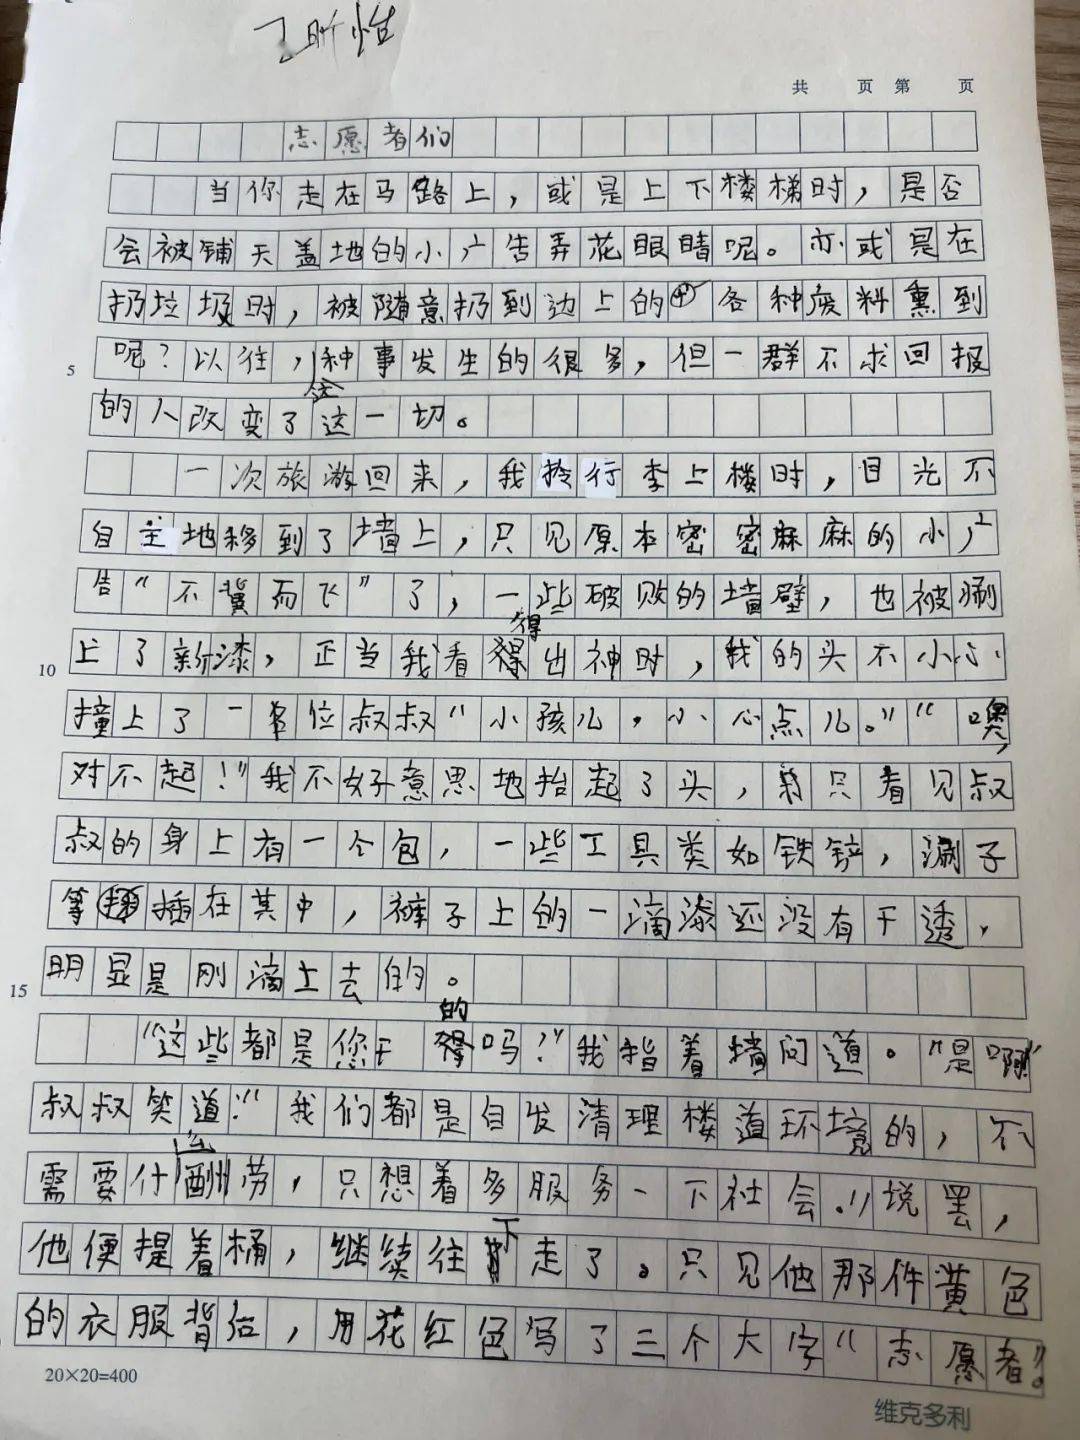 丁昕怡
共 页 第 页
志愿者们
当你走在马路上，或是上下楼梯时，是否
会被铺天盖地的小广告弄花眼睛呢。亦或是在
扔垃圾时，被随意扔到边上的各种废料熏到
5
呢？以往，这种事发生的很多，但一群不求回报
的人改变了这一切。
一次旅游回来，我拎行李上楼时，目光不
自主地移到了墙上，只见原本密密麻麻的小广
告“不翼而飞”了，一些破败的墙壁，也被刷
得
10
上了新漆，正当我看出神时，我的头不小心
撞上了一位叔叔“小孩儿，小心点儿。”“噢，
对不起！”我不好意思地抬起了头，只看见叔
叔的身上有一个包，一些工具类如铁铲，涮子
等插在其中，裤子上的一滴漆还没有干透，
15
明显是刚滴上去的。
的
“这些都是您干吗？”我指着墙问道。“是啊”
叔叔笑道！“我们都是自发清理楼道环境的，不
么
需要什酬劳，只想着多服务一下社会。”说罢，
下
他便提着桶，继续往走了。只见他那件黄色
的衣服背后，用花红色写了三个大字“志愿者”。
20×20=400
维克多利